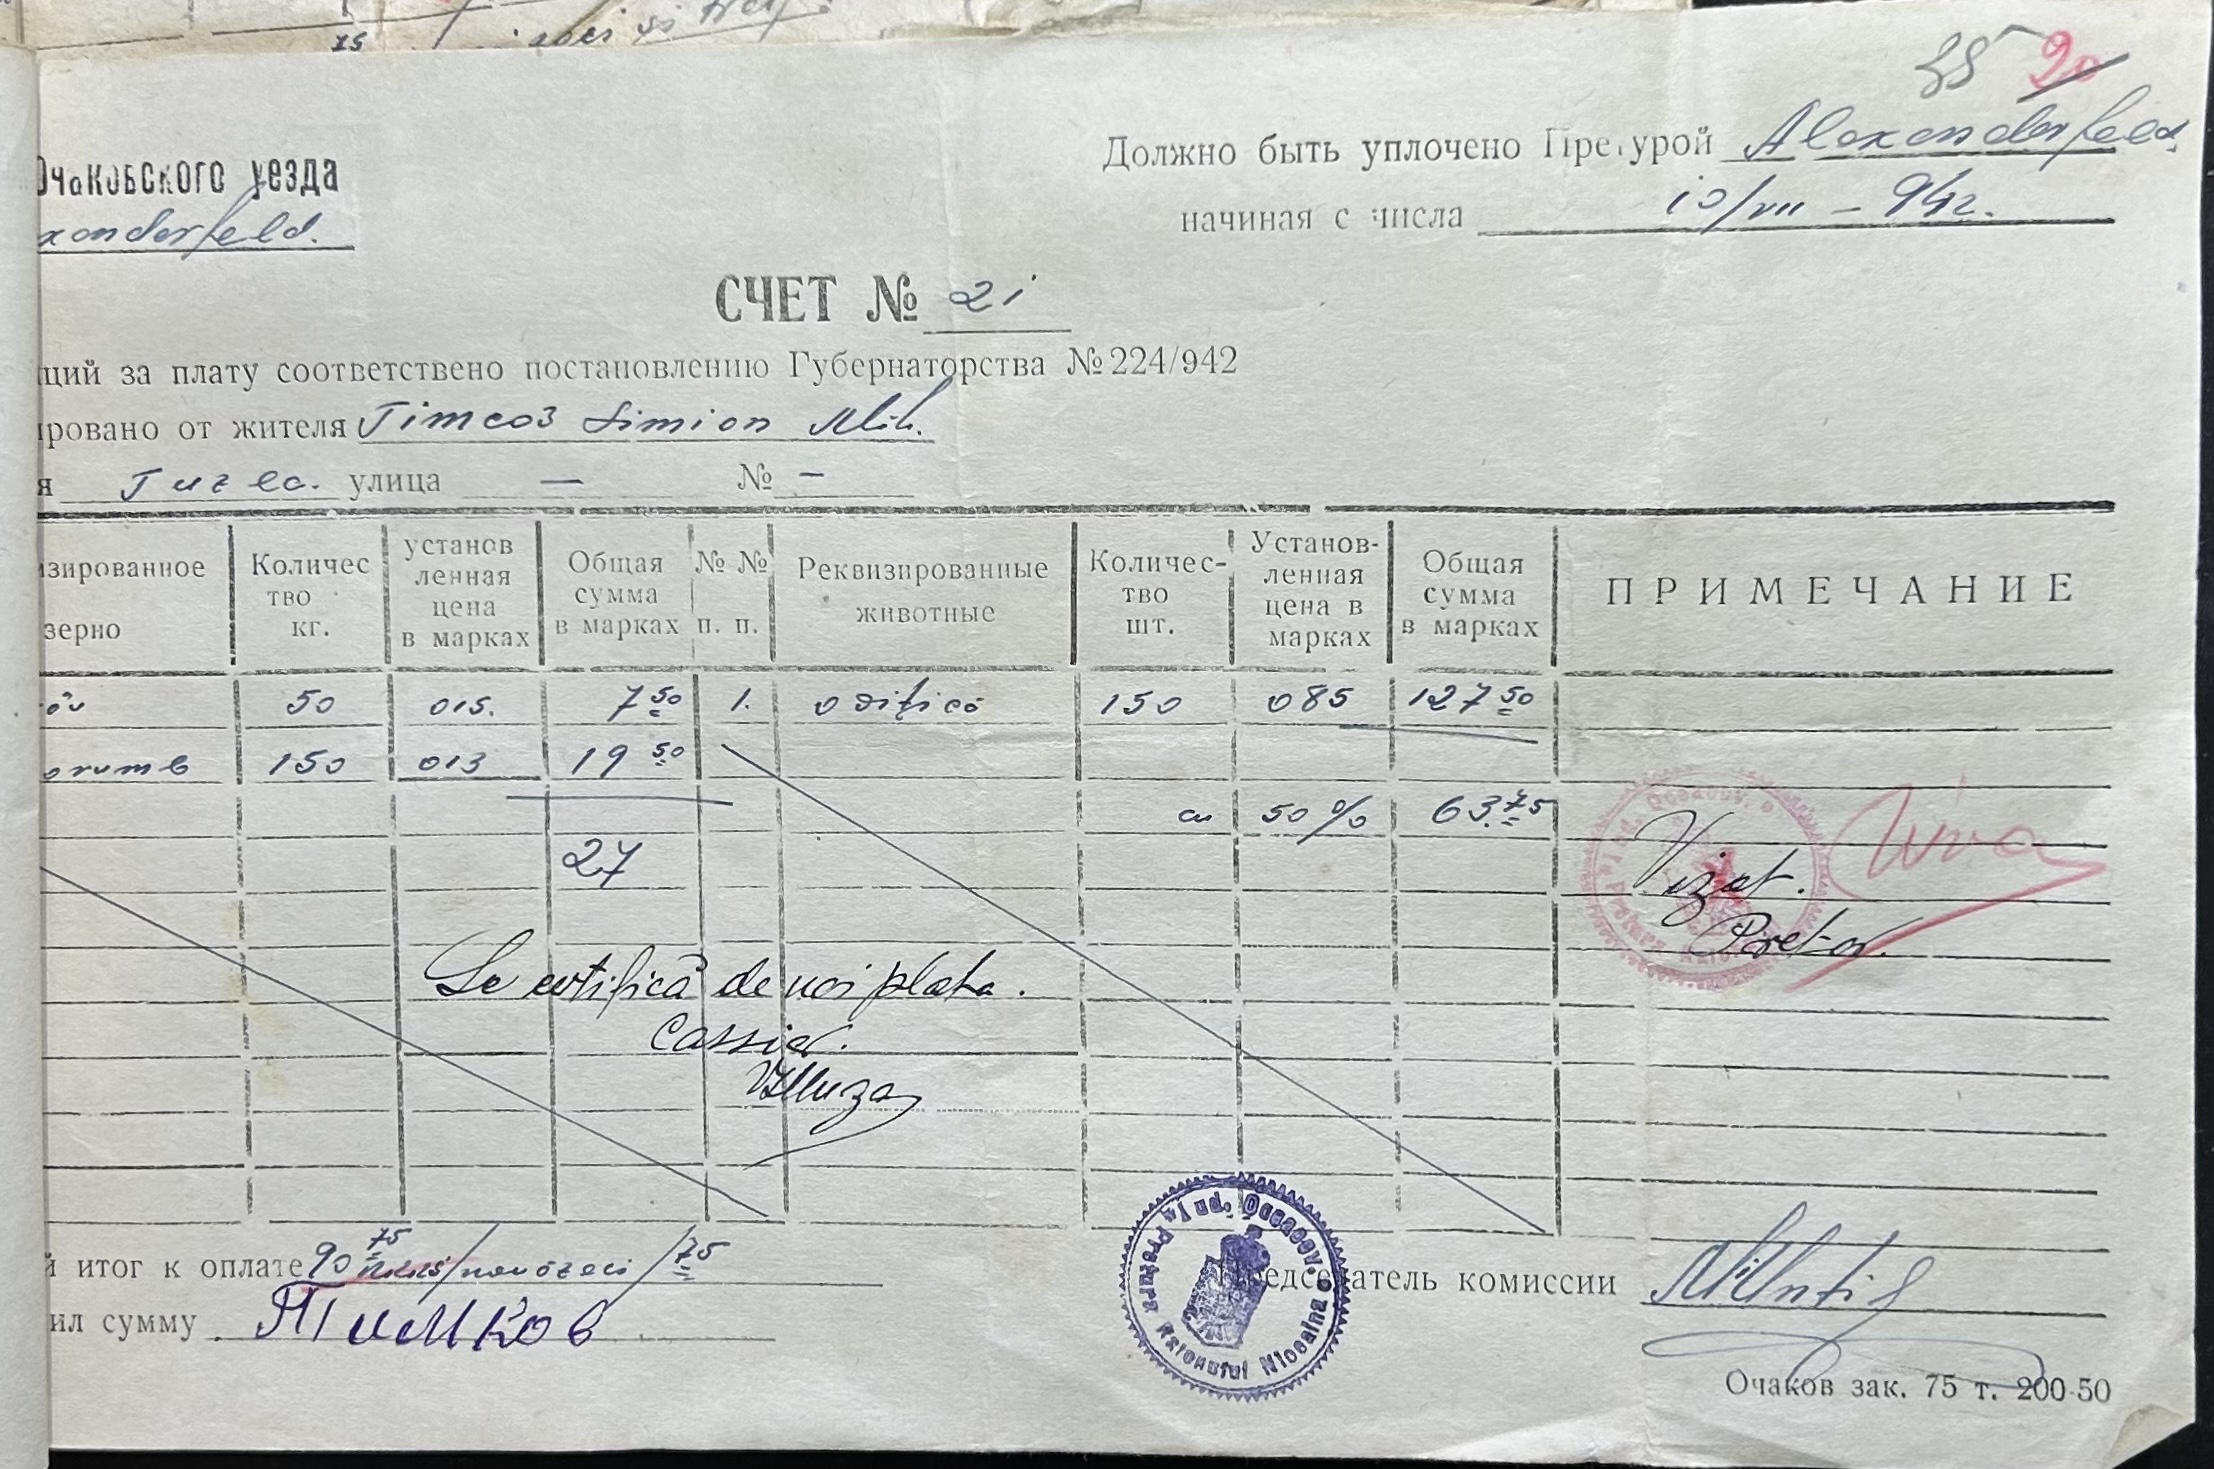 75
35 20
Очаковского уезда
Должно быть уплочено Претурой Alexanderfeld.
xanderfeld.
начиная с числа 10/VII – 942.
СЧЕТ № 21
щий за плату соответствено постановлению Губернаторства № 224/942
ировано от жителя Timcov Simion Mih.
я Tuzla. улица — № —
изированное зерно Количес тво кг. установ ленная цена в марках Общая сумма в марках № № п. п. Реквизированные животные Количес- тво шт. Установ- ленная цена в марках Общая сумма в марках ПРИМЕЧАНИЕ
50 015. 7 50 1. 150 085 127 50
150 013 19 50
cu 50% 63.75
27
Vizat.
Pretor.
Se certifică de noi plata.
Cassier.
й итог к оплате 90 75 /nouăzeci/75
Председатель комиссии
ил сумму Тимков
Pretura Raionului Nicolaina Jud. Oceacov
Очаков зак. 75 т. 200-50